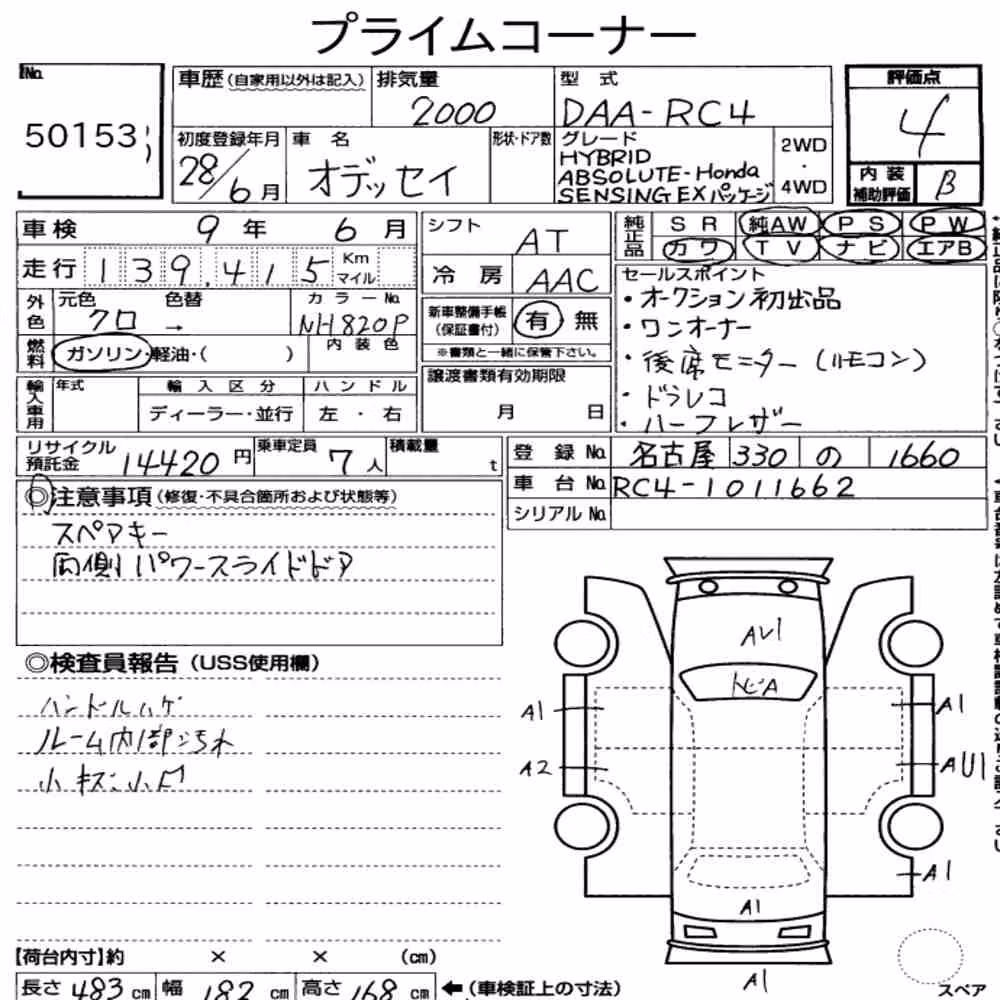 プライムコーナー
No.
50153
車歴(自家用以外は記入)
排気量
2000
型 式
DAA-RC4
評価点
4
初度登録年月
28/6月
車 名
オデッセイ
形状・ドア数
グレード
HYBRID
ABSOLUTE-Honda
SENSING EX パッケージ
2WD
・
4WD
内装
補助評価
B
車検 9年 6月
走行 139,415 Km
マイル
シフト
AT
冷 房
AAC
純正品
SR 純AW PS PW
カワ TV ナビ エアB
セールスポイント
・オークション初出品
・ワンオーナー
・後席モニター(リモコン)
・ドラレコ
・ハーフレザー
外色
元色 色替
クロ →
カラーNo.
NH820P
燃料
ガソリン・軽油・( )
内装色
新車整備手帳
(保証書付)
有 無
※書類と一緒に保管下さい。
輸入車用
年式
輸入区分
ディーラー・並行
ハンドル
左 ・ 右
譲渡書類有効期限
月 日
リサイクル
預託金
14420円
乗車定員
7人
積載量
t
登 録 No. 名古屋 330 の 1660
車 台 No. RC4-1011662
シリアル No.
◎注意事項(修復・不具合箇所および状態等)
スペアキー
両側パワースライドドア
◎検査員報告(USS使用欄)
ハンドルハゲ
ルーム内部汚れ
小キズ、小凹
AU1
トビA
A1
A1
A2
AU1
A1
A1
A1
【荷台内寸】約 × × (cm)
長さ 483 cm
幅 182 cm
高さ 168 cm
←(車検証上の寸法)
スペア